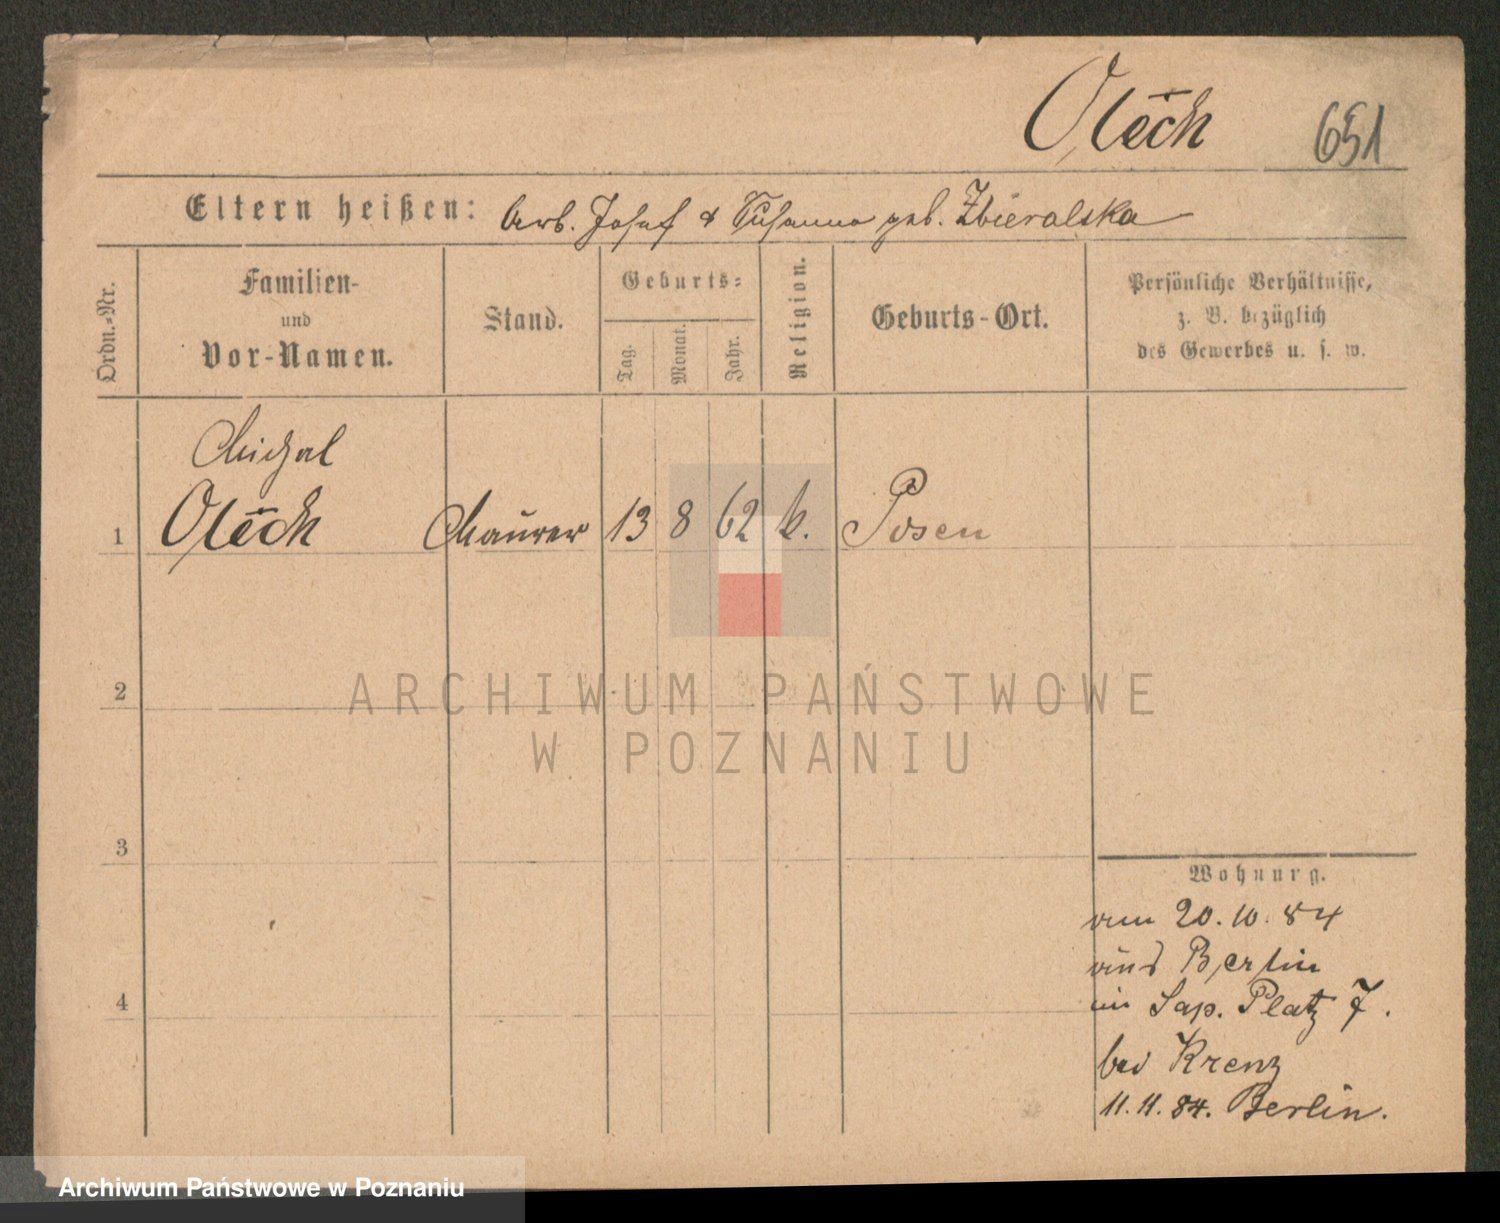 Olech 651
Eltern heißen: Arb. Josef & Susanna geb. Zbieralska
Ordn.-Nr.
Familien-
und
Vor-Namen.
Stand.
Geburts-
Tag.
Monat.
Jahr.
Religion.
Geburts-Ort.
Persönliche Verhältnisse,
z. B. bezüglich
des Gewerbes u. s. w.
Michal
1 Olech Maurer 13 8 62 k. Posen
2
ARCHIWUM PAŃSTWOWE
W POZNANIU
3
Wohnung.
am 20.10.84
aus Berlin
4
in Sap. Platz 7.
bei Krenz
11.11.84. Berlin.
Archiwum Państwowe w Poznaniu